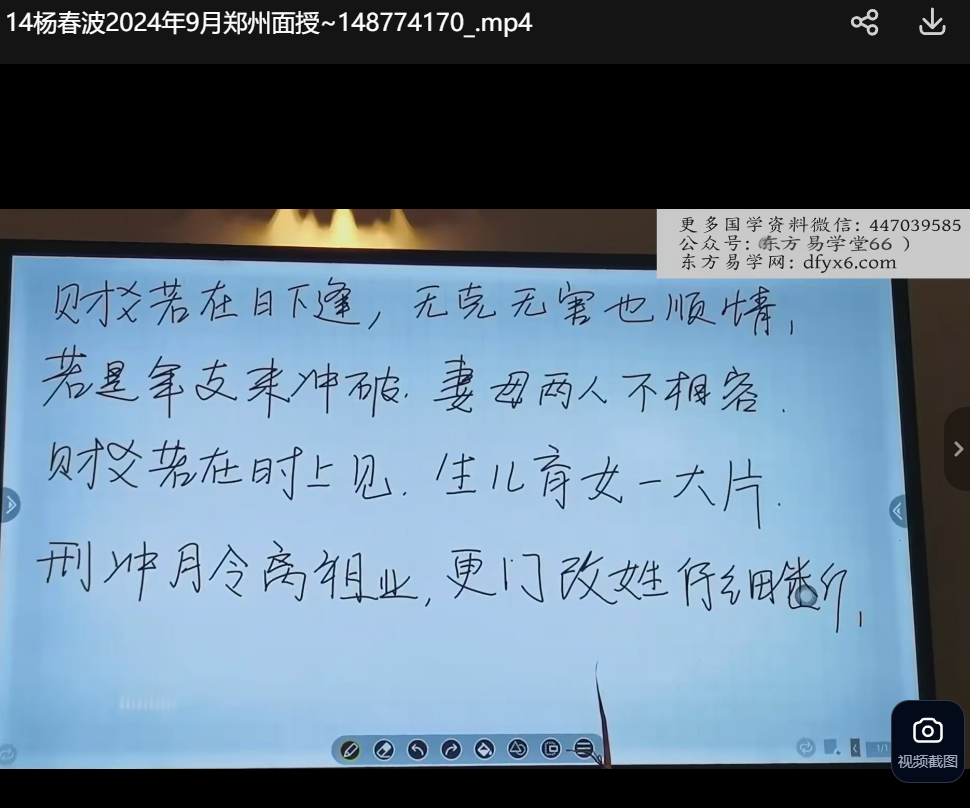 14杨春波2024年9月郑州面授~148774170_.mp4
更多国学资料微信：447039585
公众号：东方易学堂66）
东方易学网：dfyx6.com
财爻若在日下逢，无克无害也顺情，
若是年支来冲破．妻母两人不相容．
财爻若在时上见．生儿育女一大片．
刑冲月令离祖业，更门改姓仔细断，
1/1
视频截图